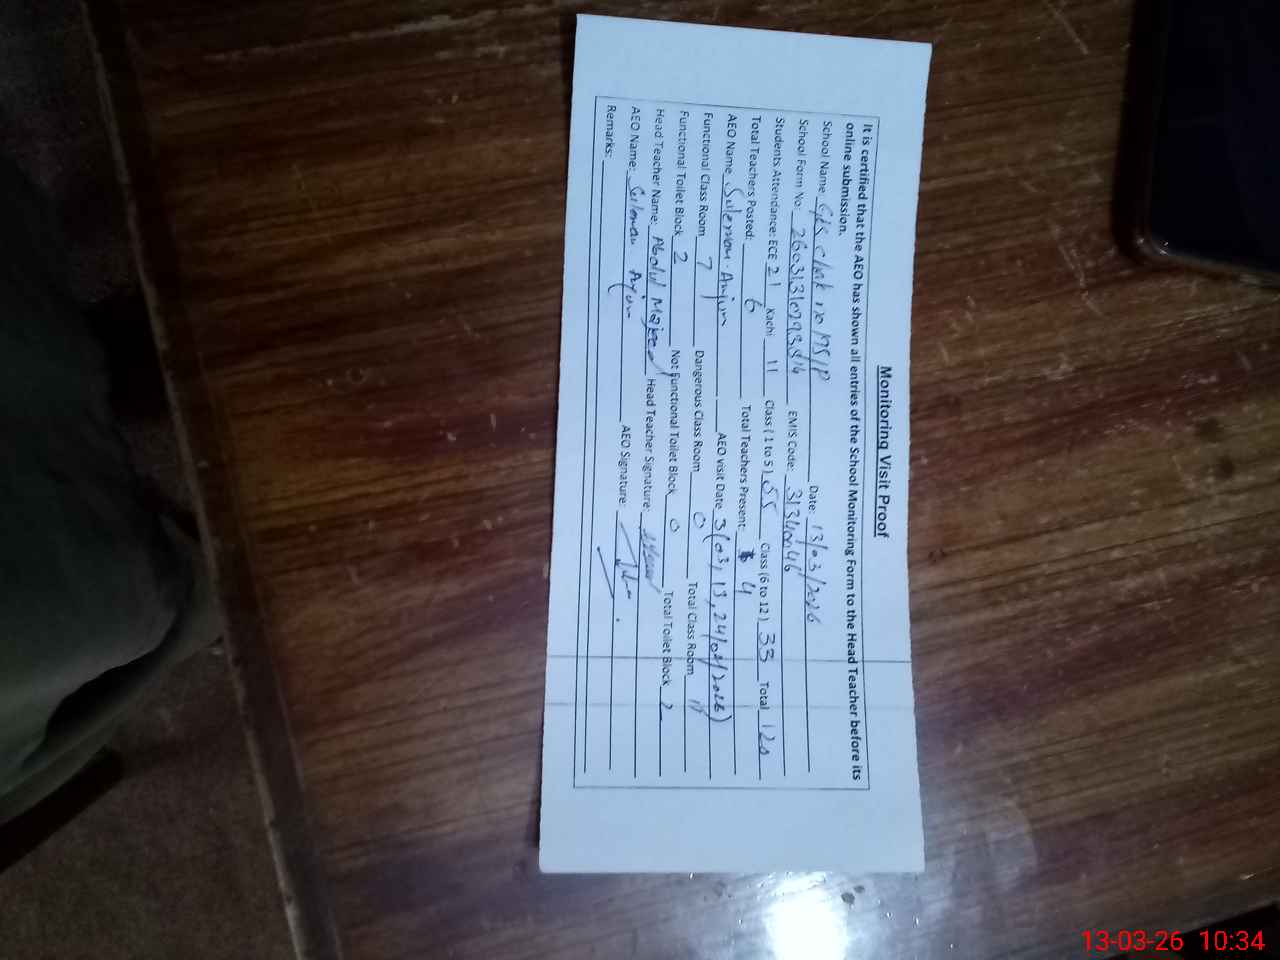 Monitoring Visit Proof
It is certified that the AEO has shown all entries of the School Monitoring Form to the Head Teacher before its
online submission.
School Name GPS chak no 175/P Date: 13/03/2026
School Form No: EMIS Code: 31340046
Students Attendance: ECE 21 Kachi 11 Class (1 to 5) 55 Class (6 to 12) 33 Total 120
Total Teachers Posted: 6 Total Teachers Present: 4
AEO Name Suleman Anjum AEO visit Date
Functional Class Room 7 Dangerous Class Room 0 Total Class Room
Functional Toilet Block 2 Not Functional Toilet Block 0 Total Toilet Block 2
Head Teacher Name: Abdul Majeed Head Teacher Signature:
AEO Name: Suleman Anjum AEO Signature:
Remarks:
13-03-26 10:34